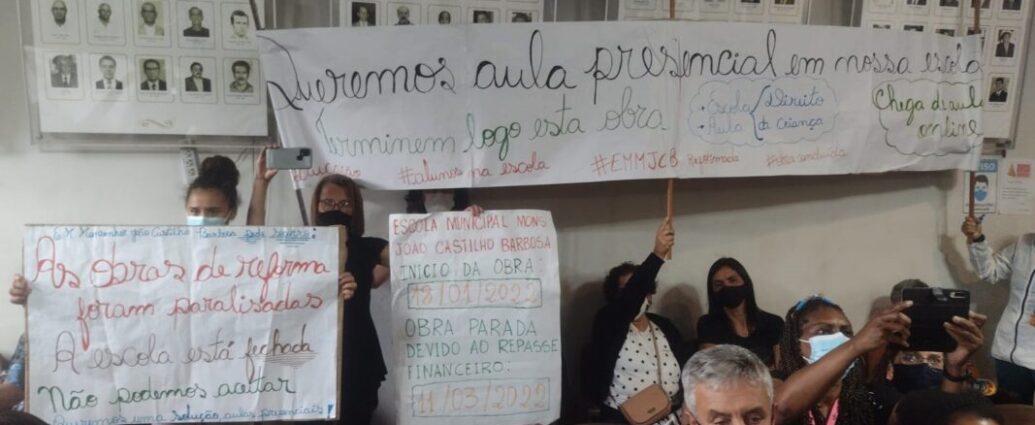 Queremos aula presencial em nossa escola
Terminem logo esta obra
• Escola
• Aula
Direito
da Criança
Chega de aula
online
#alunos na escola
#EMMJCB Reformada
E.M Monsenhor João Castilho Barbosa pede socorro!
As Obras de reforma
foram paralisadas
A escola está fechada
Não podemos aceitar
Queremos uma solução, aulas presenciais!
ESCOLA MUNICIPAL MONS
JOÃO CASTILHO BARBOSA
INÍCIO DA OBRA:
18/01/2022
OBRA PARADA
DEVIDO AO REPASSE
FINANCEIRO:
11/03/2022